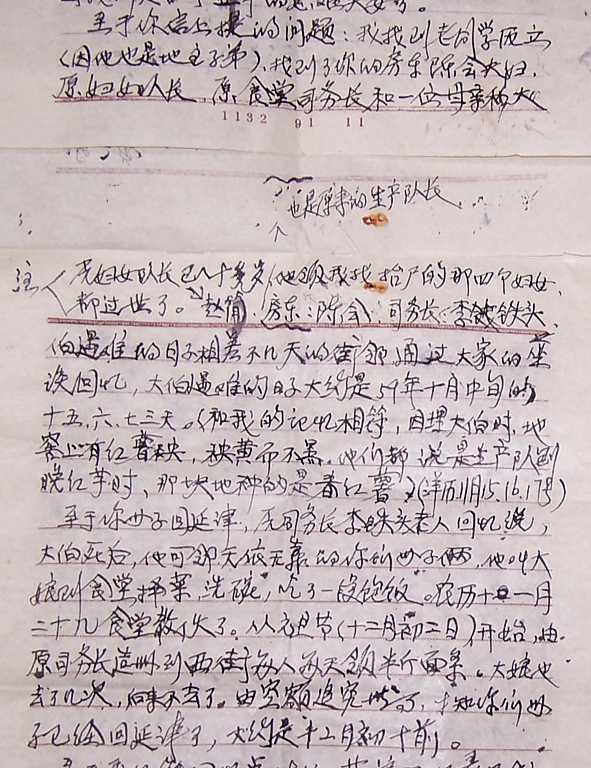 至于你信上提的问题：我找到老同学庞立
（因他也是地主子弟），找到了你的房东陈会夫妇，
原妇女队长，原食堂司务长和一位母亲和大
1132 91 11
也是原来的生产队长
注
老妇女队长已八十多岁，他领我找抬尸的那四个妇女，
都过世了。赵 房东：陈会，司务长：李铁头
伯遇难的日子相差不几天的街邻，通过大家的座
谈回忆，大伯遇难的日子大约是59年十月中旬的
十五、六、七三天。（和我的记忆相符，因埋大伯时，地
上有红薯秧，秧黄而不黑。他们都说是生产队刨
晚红芋时、那块地种的是春红薯）（洋历11月15.16.17号）
至于你母子回延津，原司务长李铁头老人回忆说，
大伯死后，他可邻无依无靠的你们母子俩，他叫大
娘到食堂择菜，洗碗，吃了一段饱饭。农历十一月
二十九食堂散伙了。从元旦节（十二月初二日）开始，由
原司务长 到西街每人每天领半斤面条。大娘也
去了几次，后来不去了。由空额追究 ，才知你们母
子已经回延津了，大约是十二月初十前）。